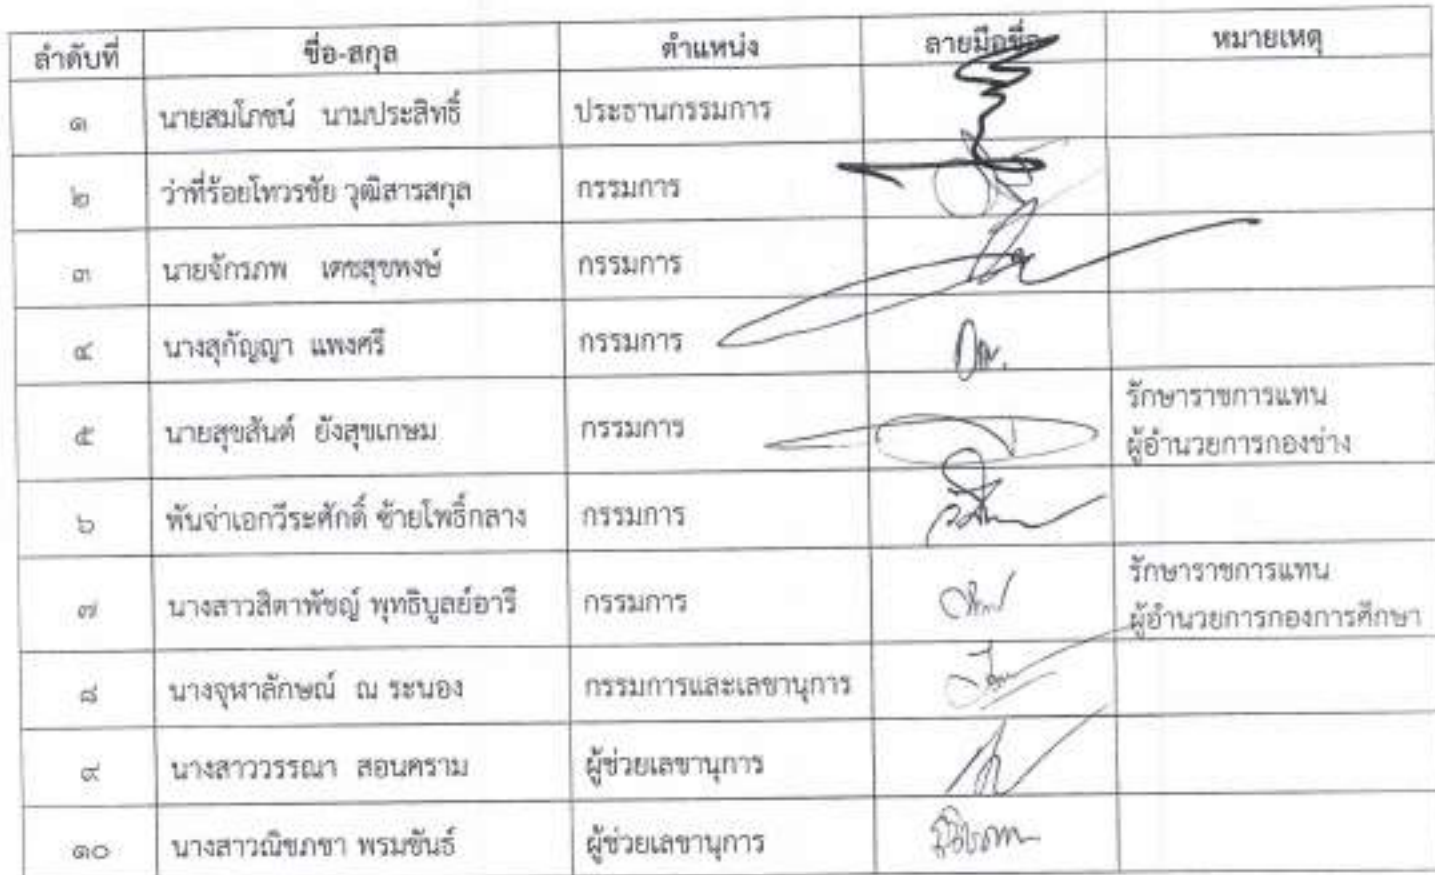 ลำดับที่ ชื่อ-สกุล ตำแหน่ง ลายมือชื่อ หมายเหตุ
๑ นายสมโภชน์ นามประสิทธิ์ ประธานกรรมการ
๒ ว่าที่ร้อยโทวรชัย วุฒิสารสกุล กรรมการ
๓ นายจักรภพ เตชสุขพงษ์ กรรมการ
๔ นางสุกัญญา แพงศรี กรรมการ
๕ นายสุขสันต์ ยังสุขเกษม กรรมการ รักษาราชการแทน
ผู้อำนวยการกองช่าง
๖ พันจ่าเอกวีระศักดิ์ ซ้ายโพธิ์กลาง กรรมการ
๗ นางสาวสิตาพัชญ์ พุทธิบูลย์อารี กรรมการ รักษาราชการแทน
ผู้อำนวยการกองการศึกษา
๘ นางจุฬาลักษณ์ ณ ระนอง กรรมการและเลขานุการ
๙ นางสาววรรณา สอนคราม ผู้ช่วยเลขานุการ
๑๐ นางสาวณิชภชา พรมขันธ์ ผู้ช่วยเลขานุการ